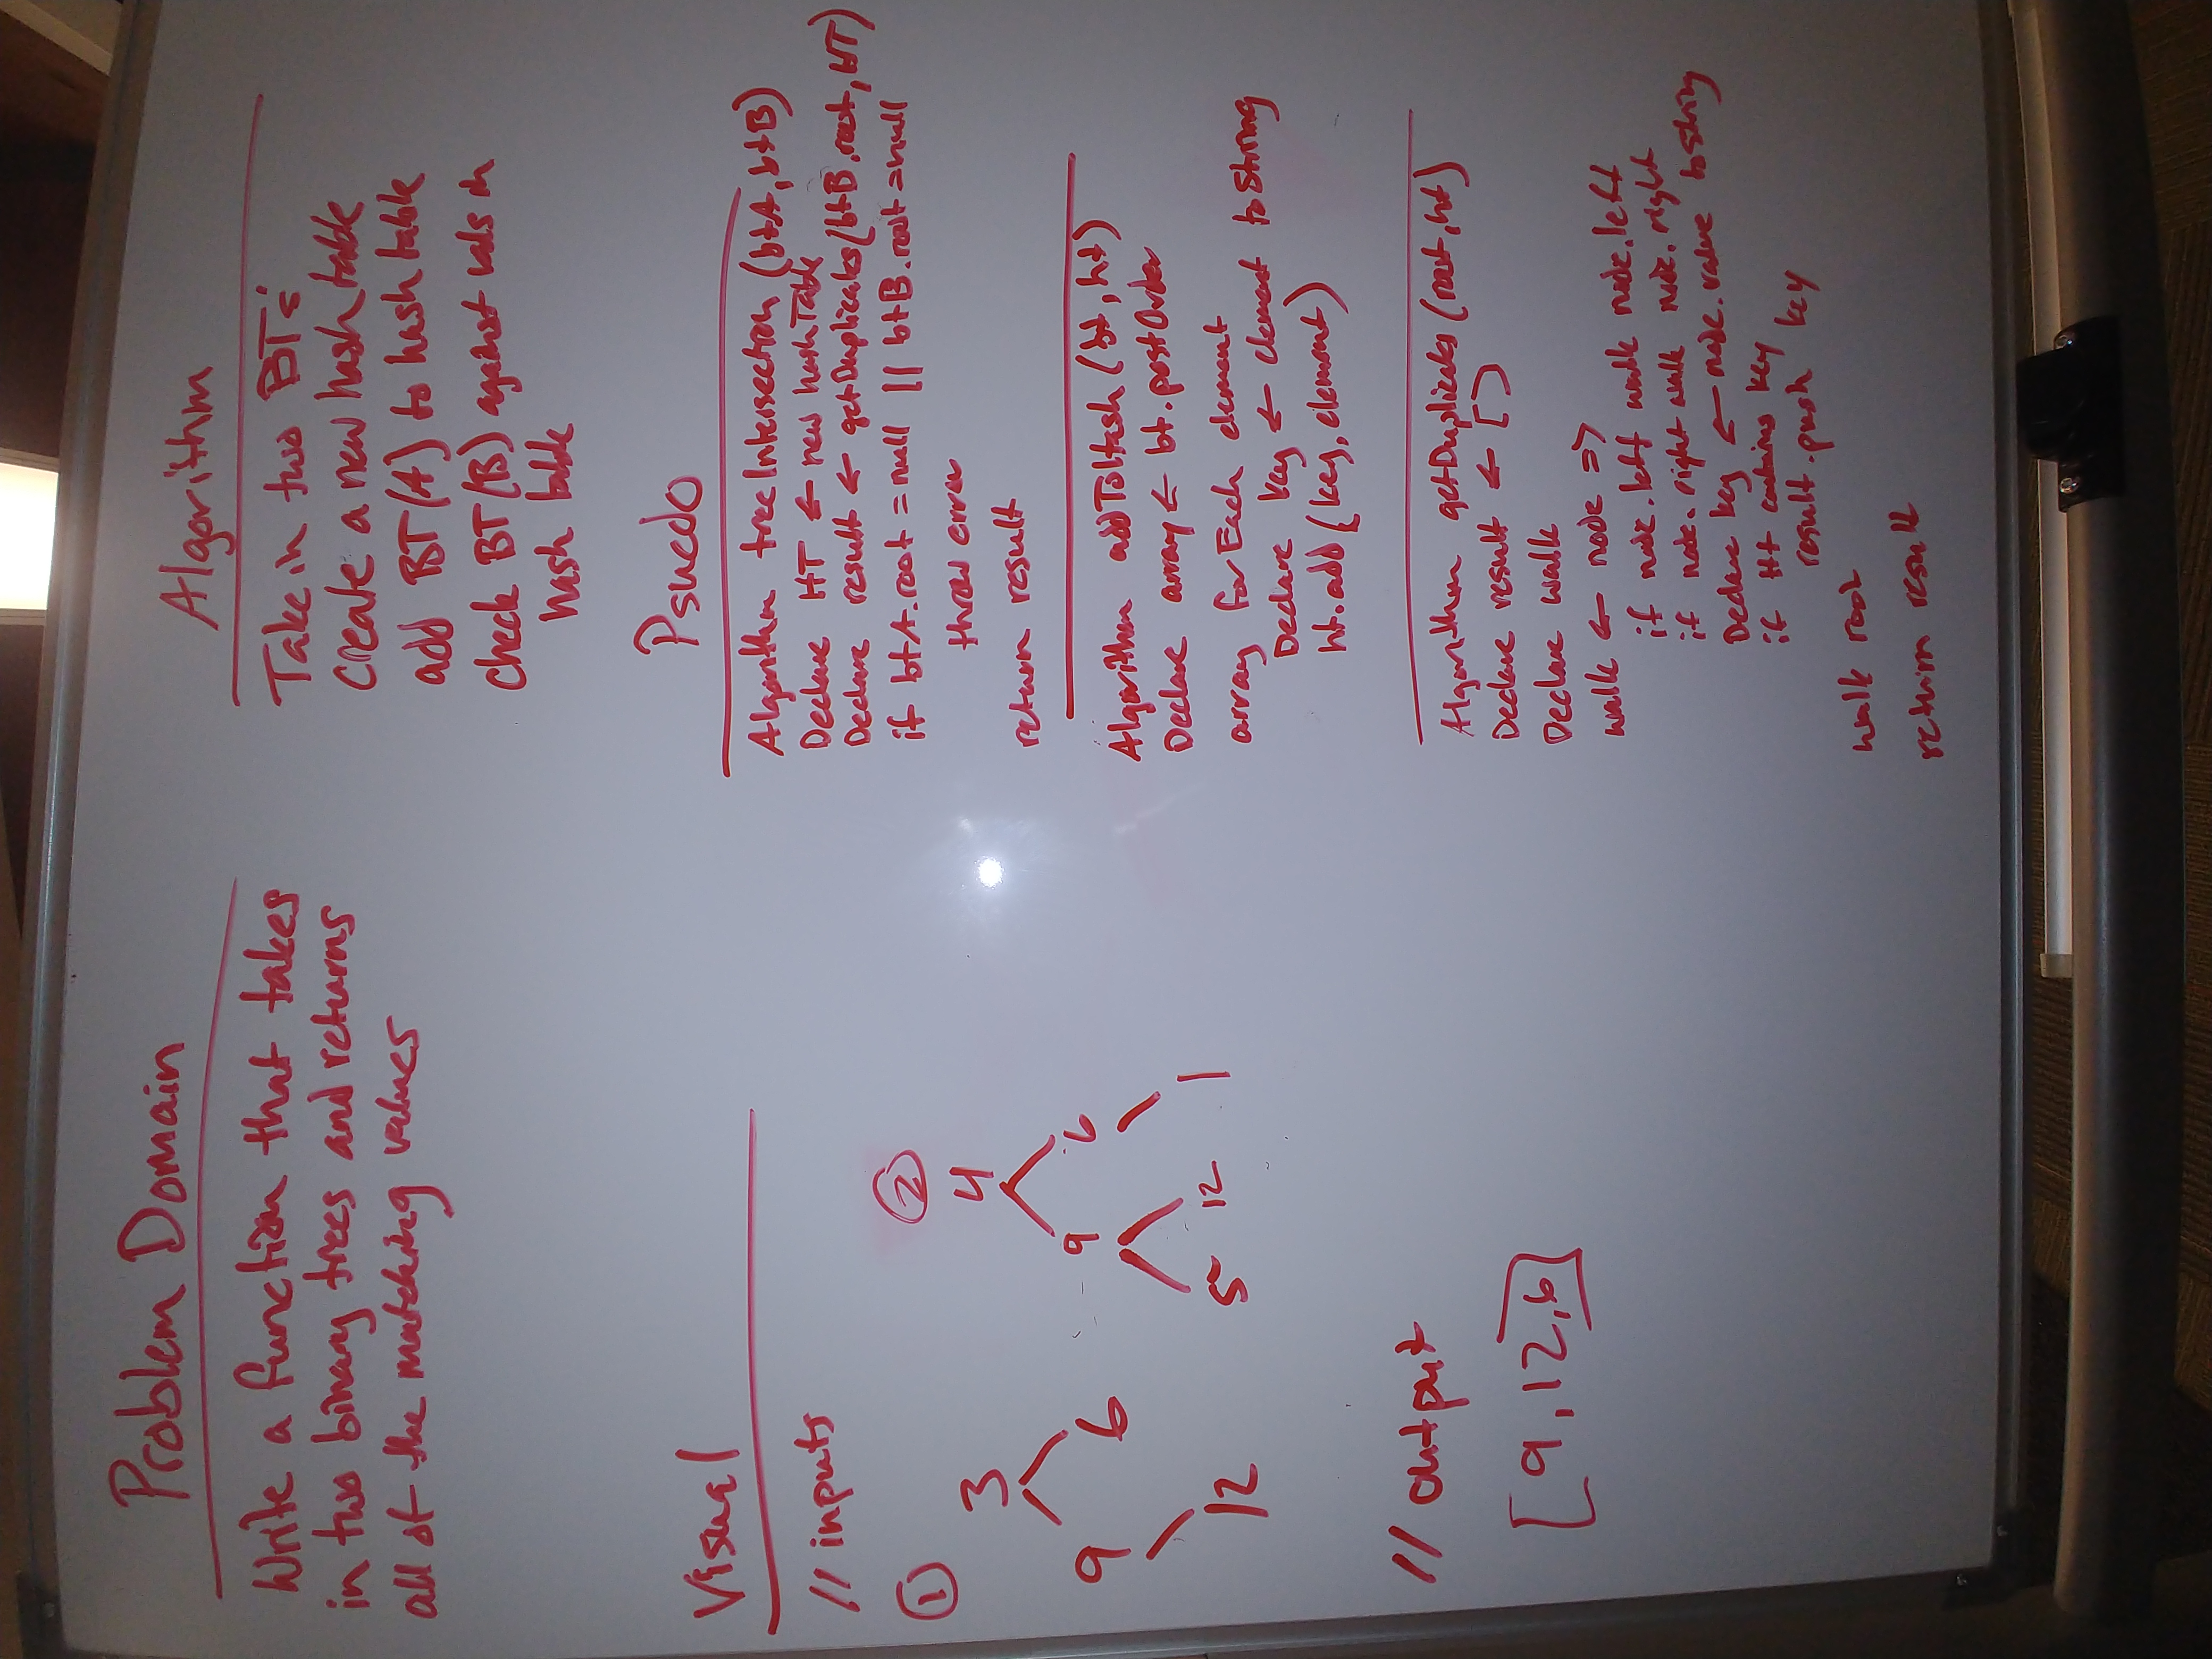 Problem Domain
Write a function that takes
in two binary trees and returns
all of the matching values
Visual
// inputs
1
2
3
9 6
12
4
9 6
5 12 1
// output
[9,12,6]
Algorithm
Take in two BT's
Create a new hash table
add BT(A) to hash table
Check BT(B) against vals in
hash table
Psuedo
Algorithm treeIntersection (btA, btB)
Declare HT ← new hashTable
Declare result ← getDuplicates(btB.root, HT)
if btA.root = null || btB.root = null
throw error
return result
Algorithm addToHash (bt, ht)
Declare array ← bt.postOrder
array forEach element
Declare key ← element toString
ht.add (key, element)
Algorithm getDuplicates (root, ht)
Declare result ← []
Declare walk
walk ← node =>
if node.left walk node.left
if node.right walk node.right
Declare key ← node.value toString
if Ht contains key
result.push key
walk root
return result